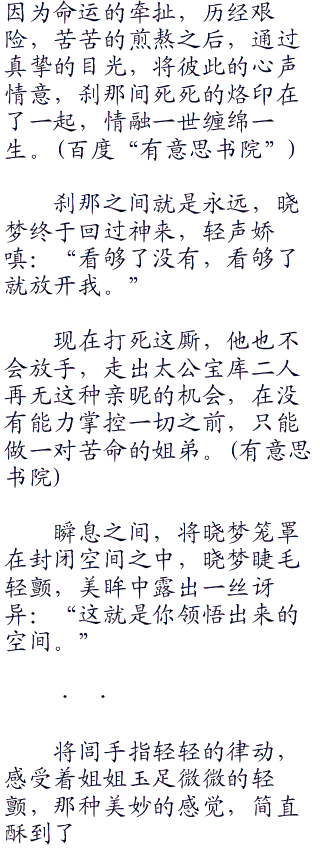 因为命运的牵扯，历经艰
险，苦苦的煎熬之后，通过
真挚的目光，将彼此的心声
情意，刹那间死死的烙印在
了一起，情融一世缠绵一
生。(百度“有意思书院”)
刹那之间就是永远，晓
梦终于回过神来，轻声娇
嗔：“看够了没有，看够了
就放开我。”
现在打死这厮，他也不
会放手，走出太公宝库二人
再无这种亲昵的机会，在没
有能力掌控一切之前，只能
做一对苦命的姐弟。(有意思
书院)
瞬息之间，将晓梦笼罩
在封闭空间之中，晓梦睫毛
轻颤，美眸中露出一丝讶
异：“这就是你领悟出来的
空间。”
． ．
将闾手指轻轻的律动，
感受着姐姐玉足微微的轻
颤，那种美妙的感觉，简直
酥到了